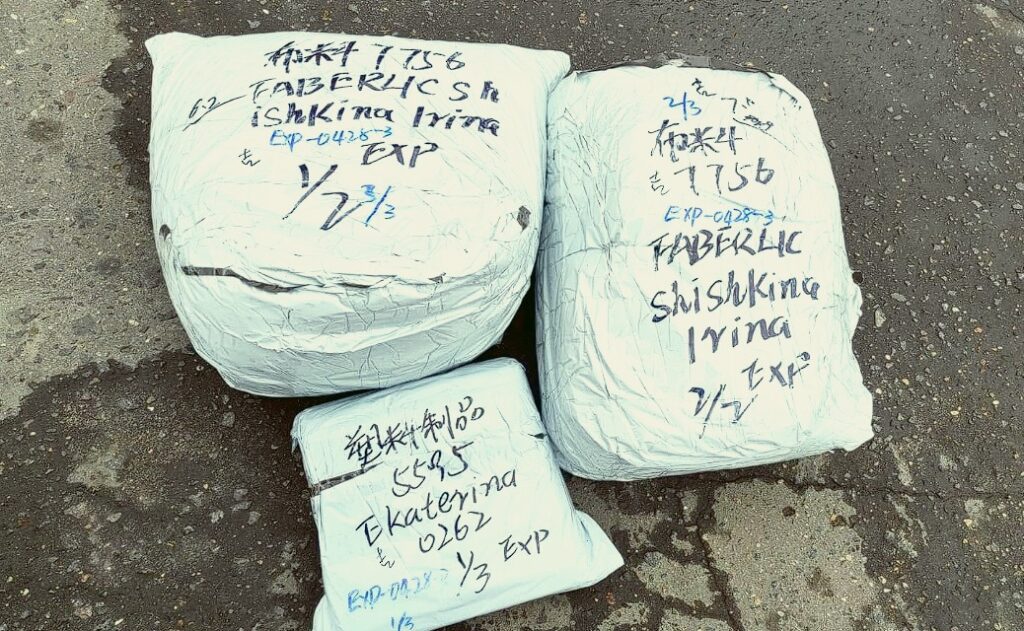 布料 7756
62
FABERLIC Sh
ishkina Irina
EXP-0428-3
吉
EXP
1/2
3/3
吉
2/3
布料
吉
7756
EXP-0428-3
FABERLIC
shishkina
Irina
EXP
2/2
塑料制品
5595
Ekaterina
0262
吉
1/3 EXP
EXP-0428-
1/3